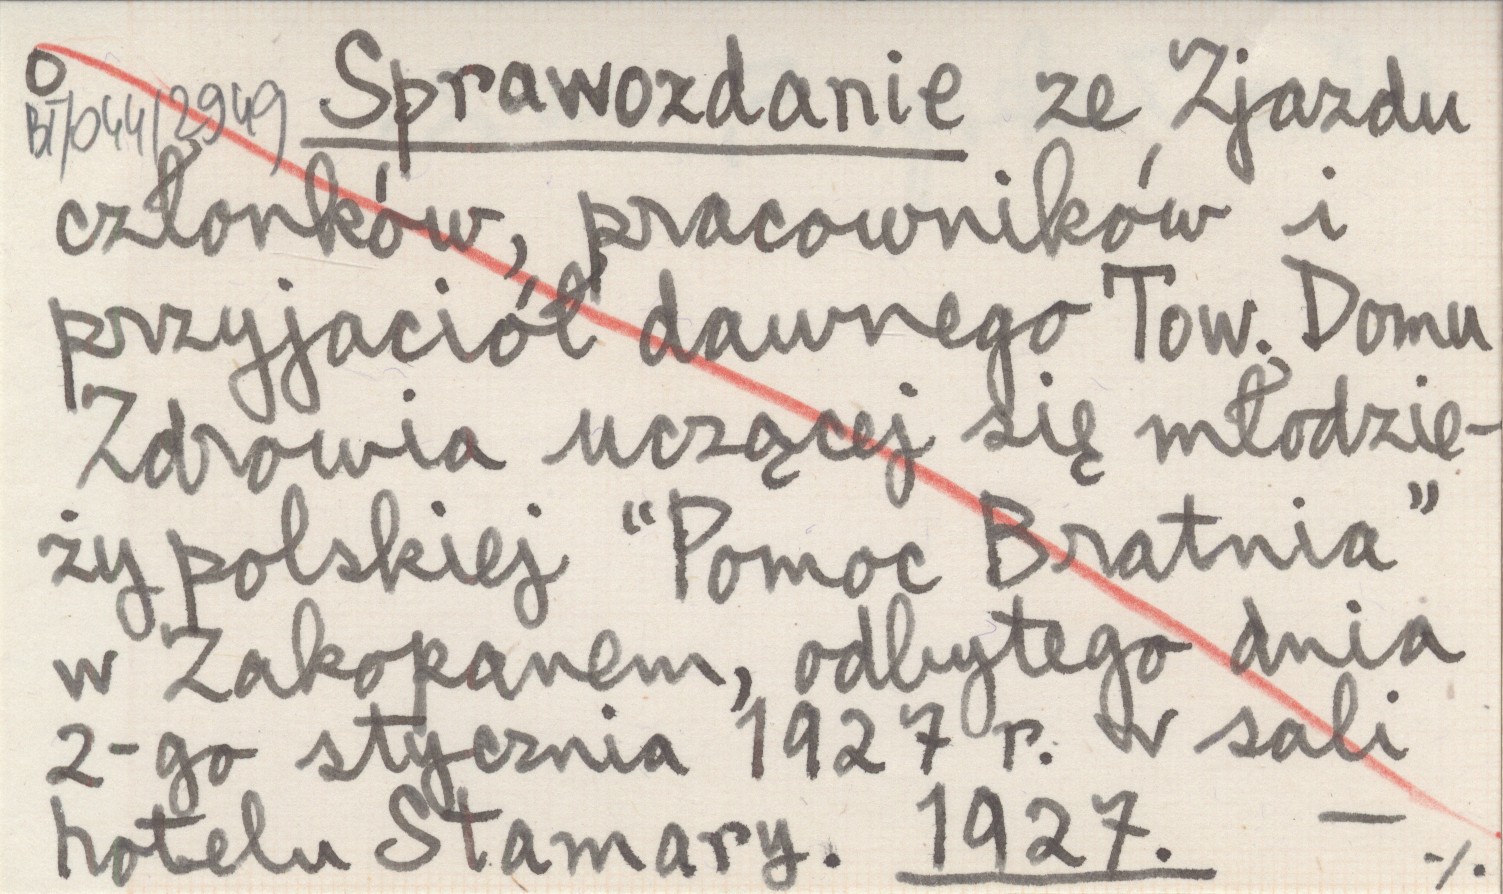 O Sprawozdanie ze Zjazdu
BT/044/2949
członków, pracowników i
przyjaciół dawnego Tow. Domu
Zdrowia uczącej się młodzie-
ży polskiej “Pomoc Bratnia”
w Zakopanem, odbytego dnia
2-go stycznia 1927 r. w sali
hotelu Stamary. 1927. —
-/.